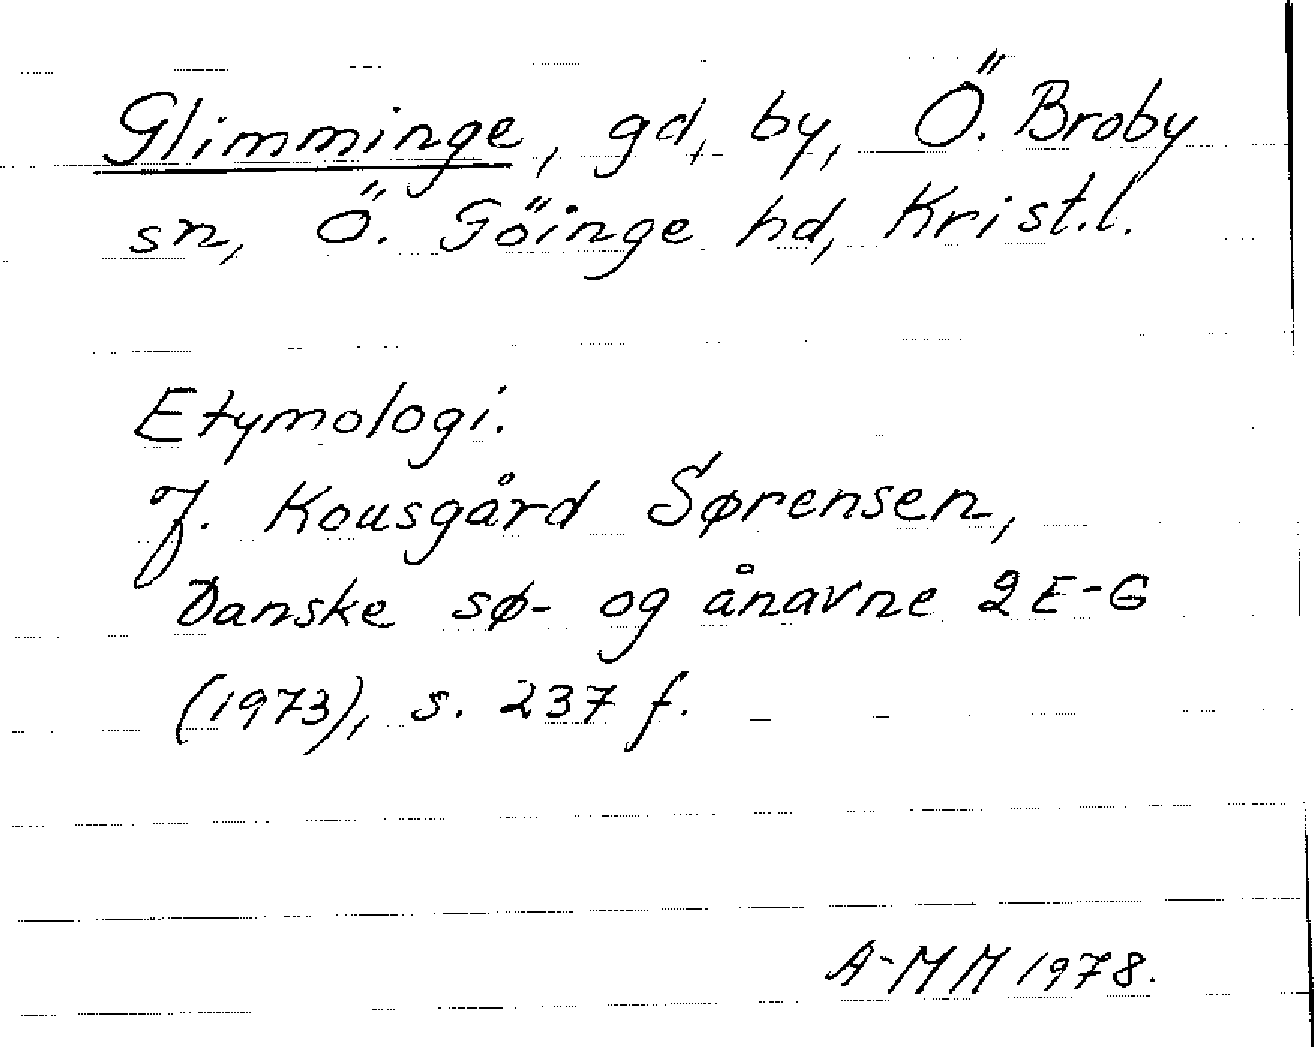 Glimminge, gd, by, Ö. Broby
sn, Ö. Göinge hd, Krist.l.
Etymologi.
J. Kousgård Sørensen,
Danske sø- og ånavne 2 E-G
(1973), s. 237 f.
A-MM 1978.